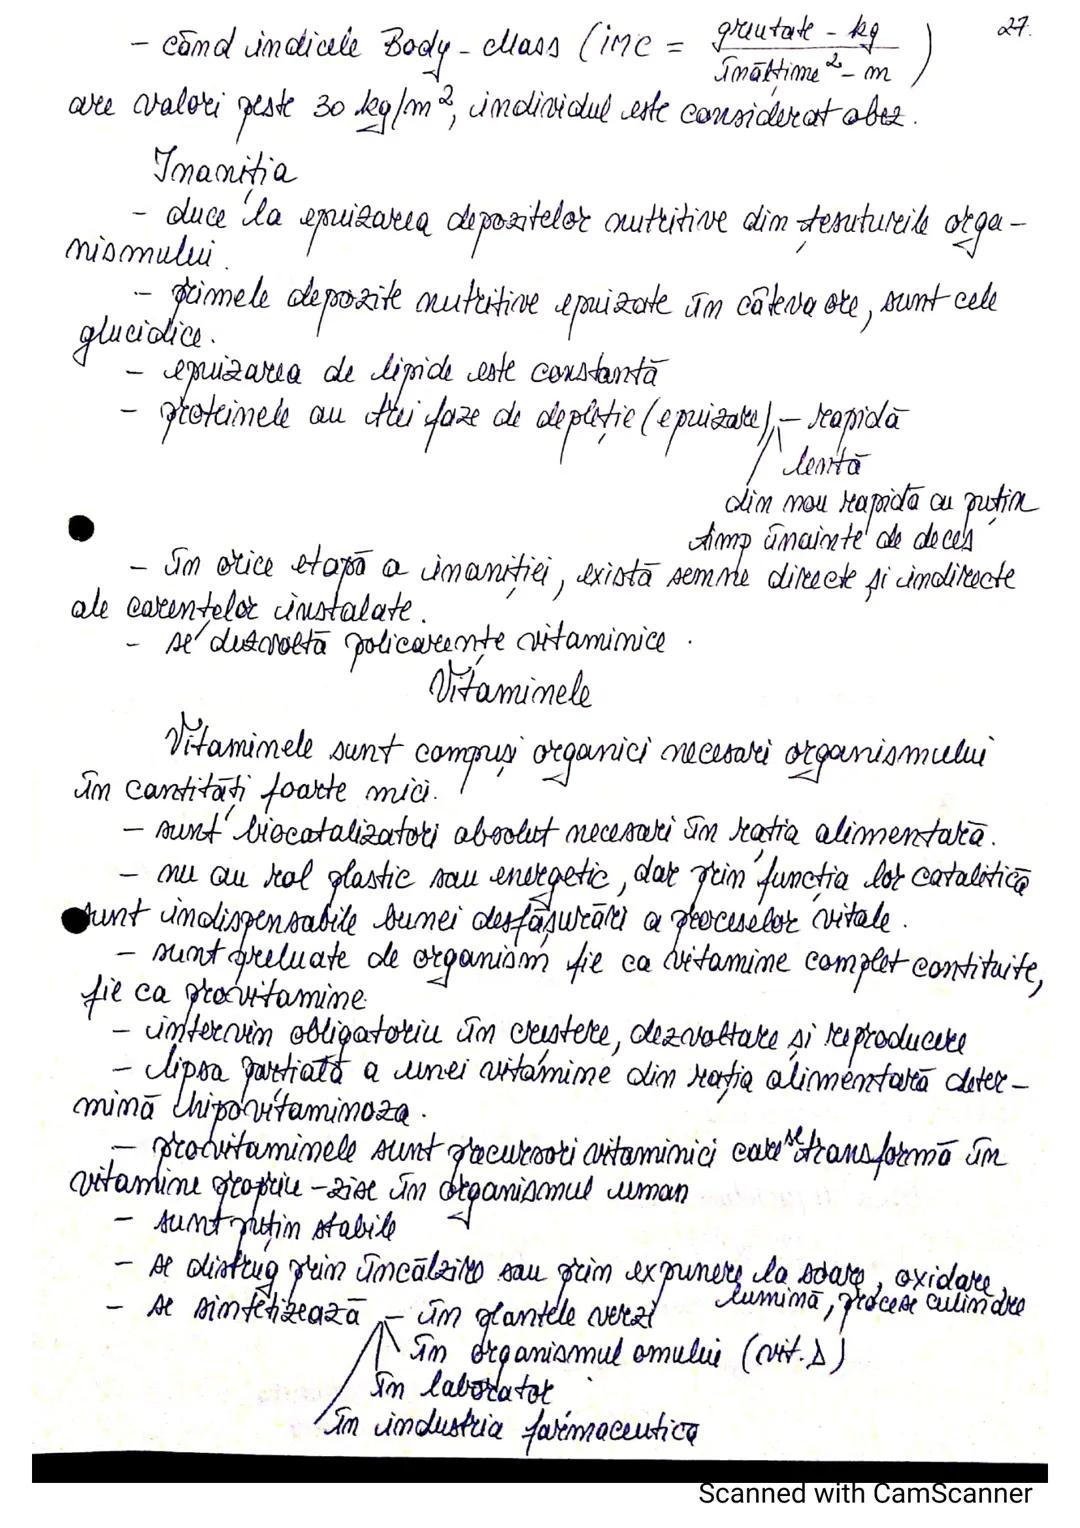 27.
- când indicele Body-Mass (imc = greutate - kg / înălțime² - m)
are valori peste 30 kg/m², individul este considerat obez.
Inaniția
- duce la epuizarea depozitelor nutritive din țesuturile orga-
nismului.
- primele depozite nutritive epuizate în câteva ore, sunt cele
glucidice.
- epuizarea de lipide este constantă
- proteinele au trei faze de depleție (epuizare) - rapidă
lentă
din nou rapidă cu puțin
timp înainte de deces
- în orice etapă a inaniției, există semne directe și indirecte
ale carențelor instalate.
- se dezvoltă policarențe vitaminice.
Vitaminele
Vitaminele sunt compuși organici necesari organismului
în cantități foarte mici.
- sunt biocatalizatori absolut necesari în rația alimentară.
- nu au rol plastic sau energetic, dar prin funcția lor catalitică
sunt indispensabile bunei desfășurări a proceselor vitale.
- sunt preluate de organism fie ca vitamine complet contituite,
fie ca provitamine.
- intervin obligatoriu în creștere, dezvoltare și reproducere
- lipsa parțială a unei vitamine din rația alimentară deter-
mină hipovitaminoza.
- provitaminele sunt precursori vitaminici care se transformă în
vitamine propriu-zise în organismul uman
- sunt puțin stabile
- se distrug prin încălzire sau prin expunere la soare, oxidare,
lumină, procese culinare
- se sintetizează - în plantele verzi
în organismul omului (vit. D)
în laborator
în industria farmaceutică
Scanned with CamScanner